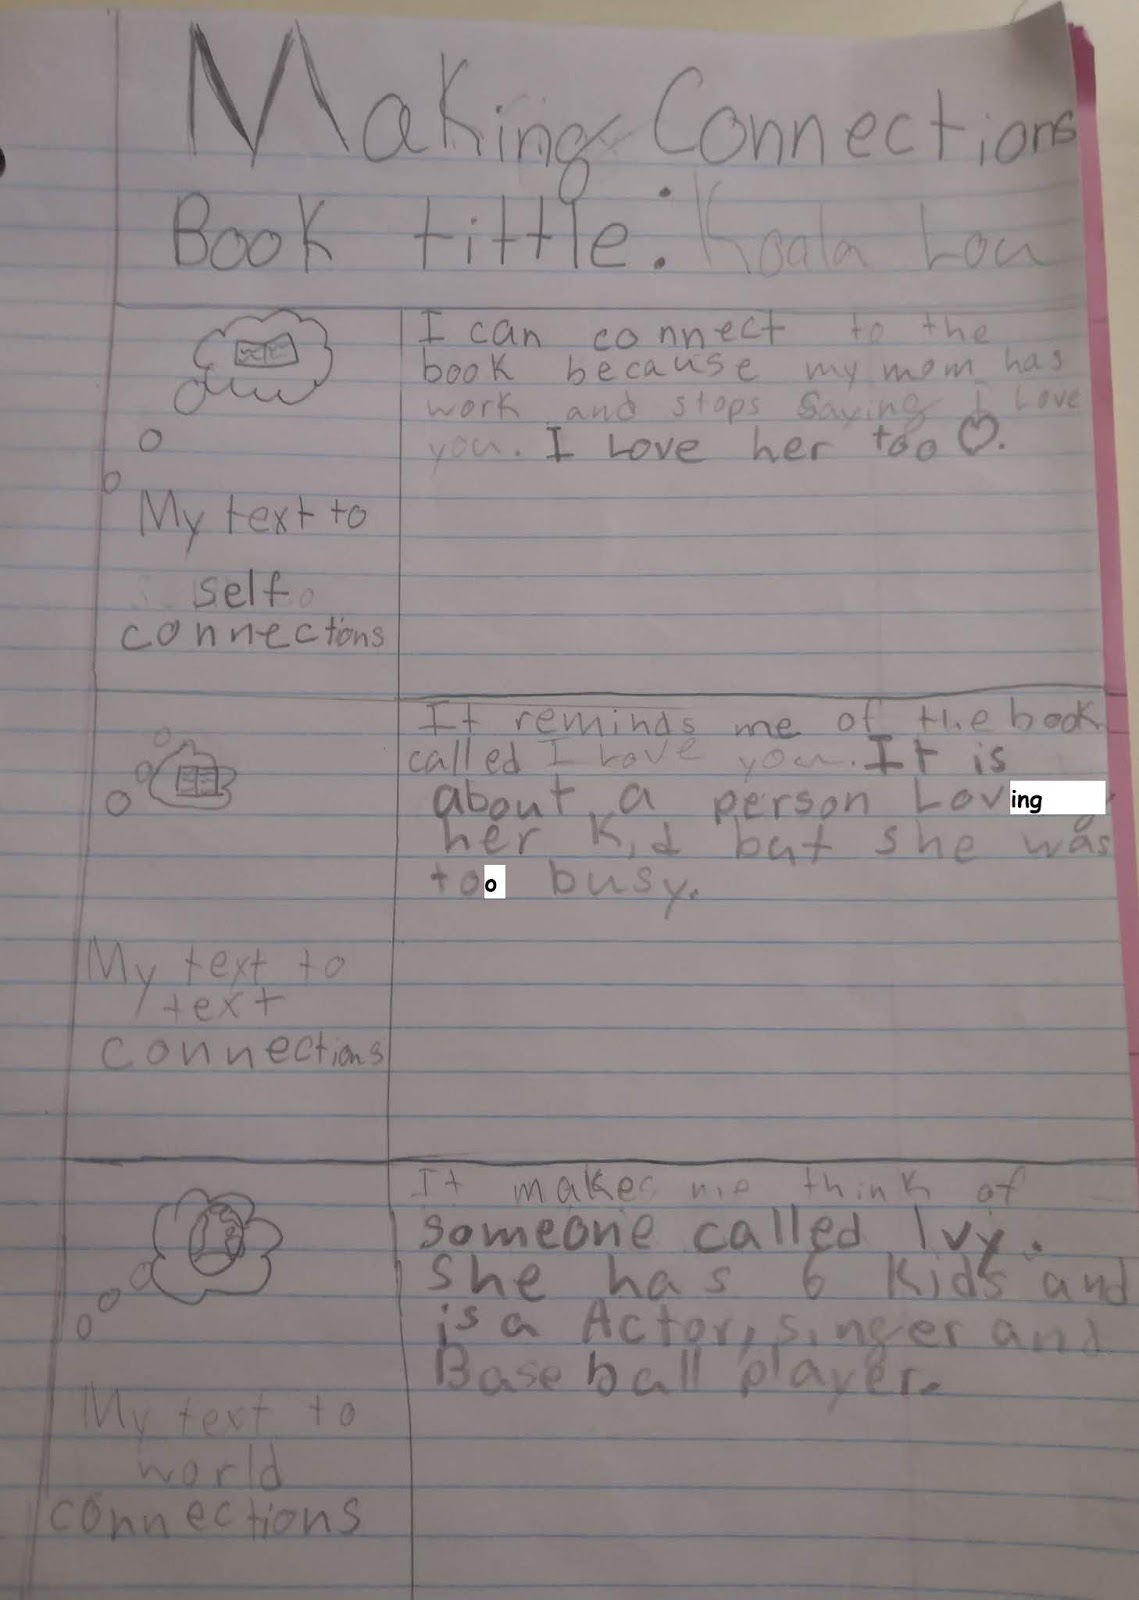 Making Connections
Book tittle: Koala Lou
I can connect to the
book because my mom has
work and stops saying I Love
you. I Love her too
My text to
self
connections
It reminds me of the book
called I Love you. It is
about a person Loving
her Kid but she was
too busy.
My text to
text
connections
It makes me think of
someone called Ivy.
She has 6 Kids and
is a Actor, singer and
Base ball player.
My text to
world
connections